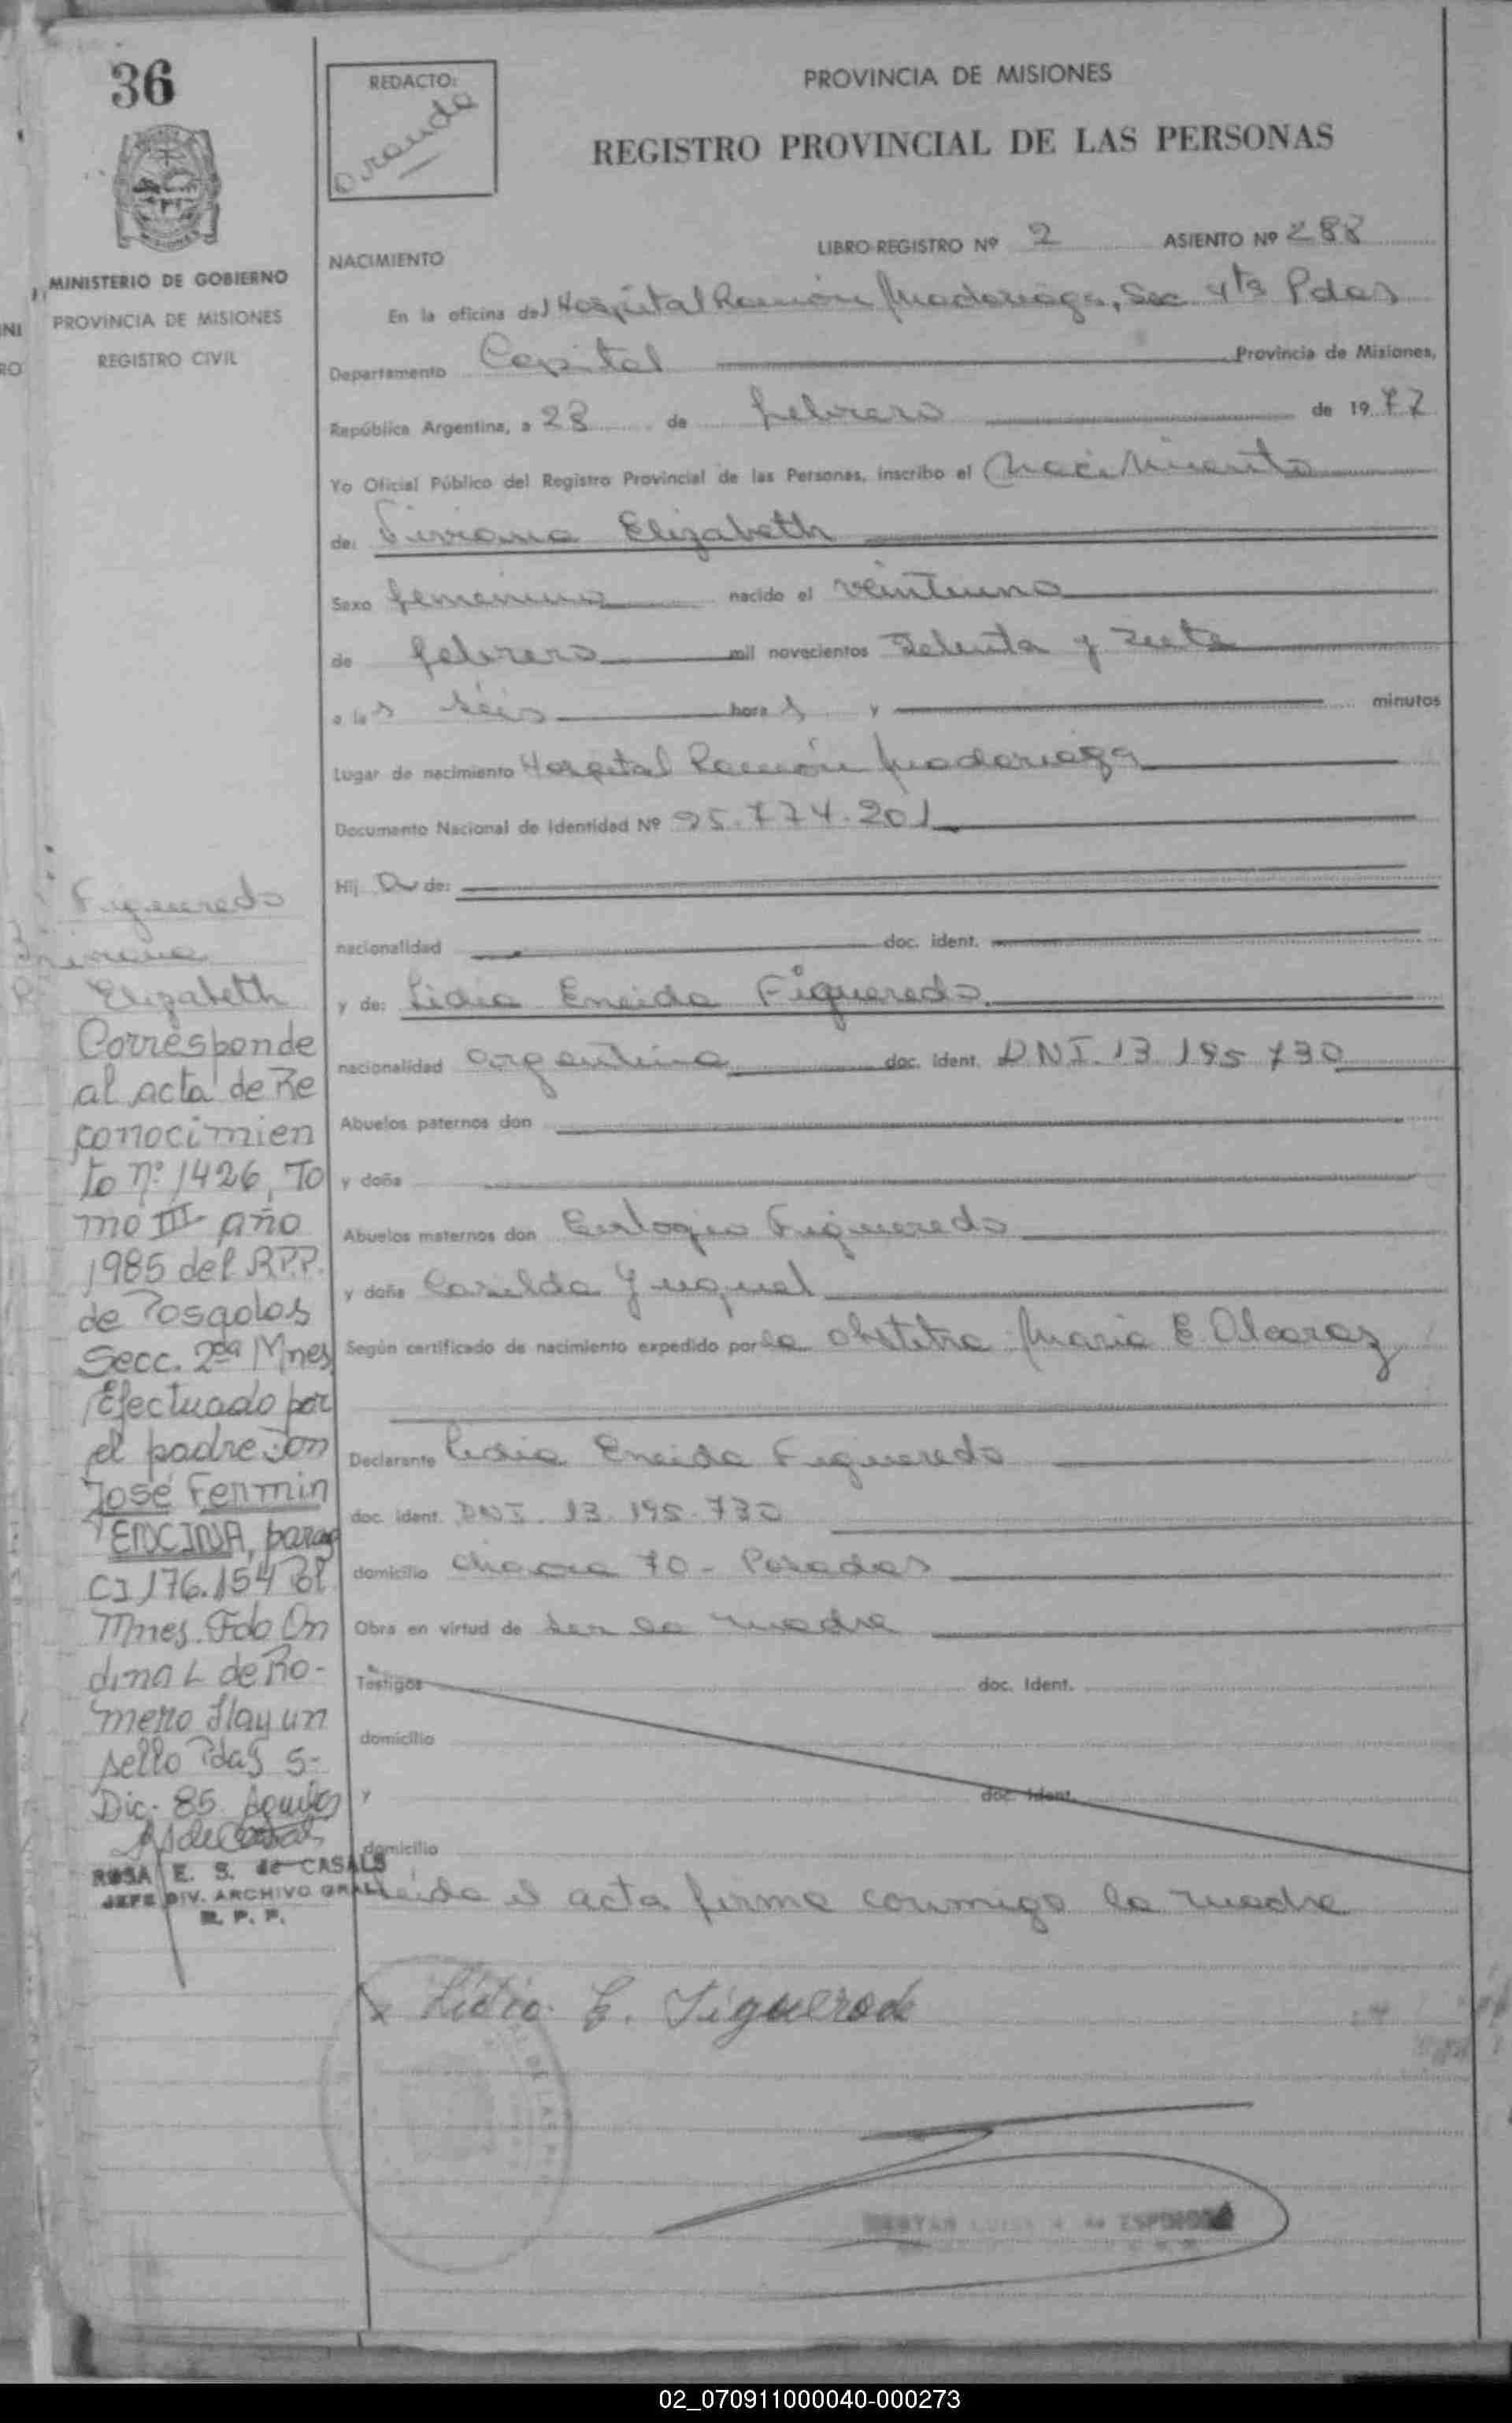 36
REDACTO:
Aranda
PROVINCIA DE MISIONES
REGISTRO PROVINCIAL DE LAS PERSONAS
MINISTERIO DE GOBIERNO
PROVINCIA DE MISIONES
REGISTRO CIVIL
NACIMIENTO
LIBRO-REGISTRO Nº 2 ASIENTO Nº 288
En la oficina del Hospital Ramón Madariaga, Sec 4ta Pdas
Departamento Capital Provincia de Misiones,
República Argentina, a 28 de febrero de 1977
Yo Oficial Público del Registro Provincial de las Personas, inscribo el Nacimiento
de: Viviana Elizabeth
Sexo femenino nacido el veintiuno
de febrero mil novecientos setenta y siete
a las seis horas y minutos
Lugar de nacimiento Hospital Ramón Madariaga
Documento Nacional de Identidad Nº 25.774.201
Hija de:
nacionalidad doc. ident.
y de: Lidia Eneida Figueredo
nacionalidad argentina doc. ident. DNI. 13.195.730
Abuelos paternos don
y doña
Abuelos maternos don Eulogio Figueredo
y doña Casilda
Según certificado de nacimiento expedido por la obstetra María E. Alcaraz
Declarante Lidia Eneida Figueredo
doc. ident. DNI. 13.195.730
domicilio chacra 70 - Posadas
Obra en virtud de ser la madre
Testigos doc. Ident.
domicilio
y doc. Ident.
domicilio
Leída el acta firma conmigo la madre
Lidia E. Figueredo
Figueredo
Viviana
Elizabeth
Corresponde
al acta de Re
conocimien
to nº 1426, To
mo III año
1985 del R.P.P.
de Posadas
Secc. 2da Mnes
Efectuado por
el padre Don
José Fermin
ENCINA, parag
CI 176.154 Pol
Mnes. Fdo On
dina L de Ro-
mero Hay un
sello Pdas 5-
Dic. 85
ROSA E. S. de CASALS
JEFE DIV. ARCHIVO GRAL
R. P. P.
de ESPINOSA
02_070911000040-000273